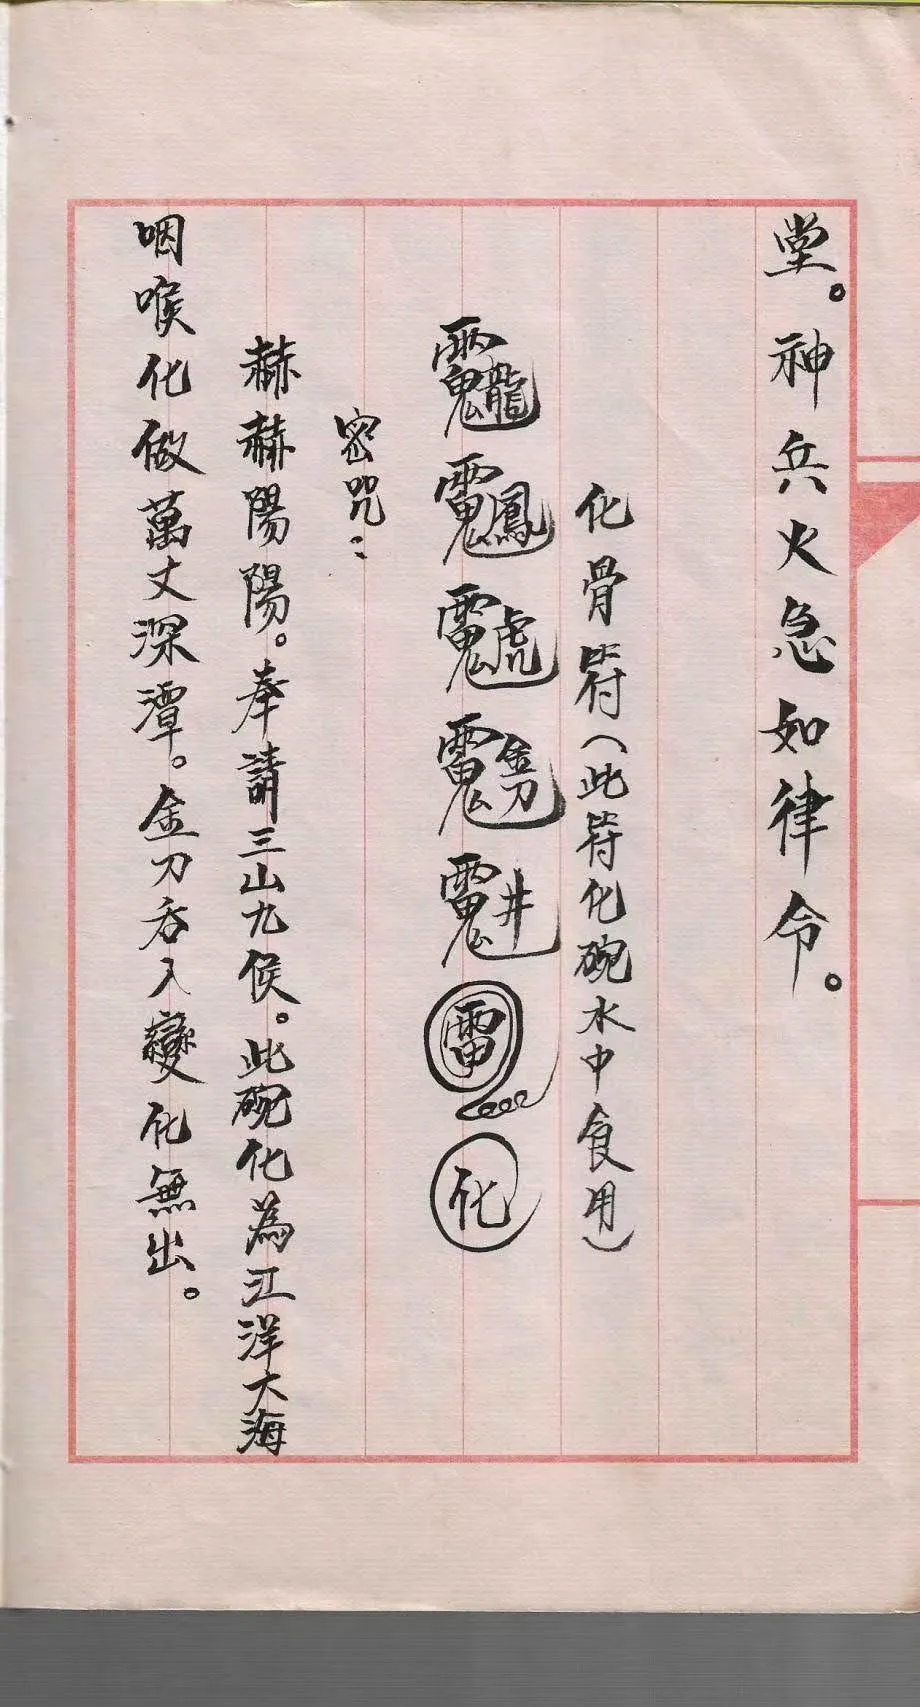 堂。神兵火急如律令。
化骨符(此符化碗水中食用)
雷 化
密咒:
赫赫陽陽。奉請三山九侯。此碗化為江洋大海
咽喉化做萬丈深潭。金刀吞入變化無出。